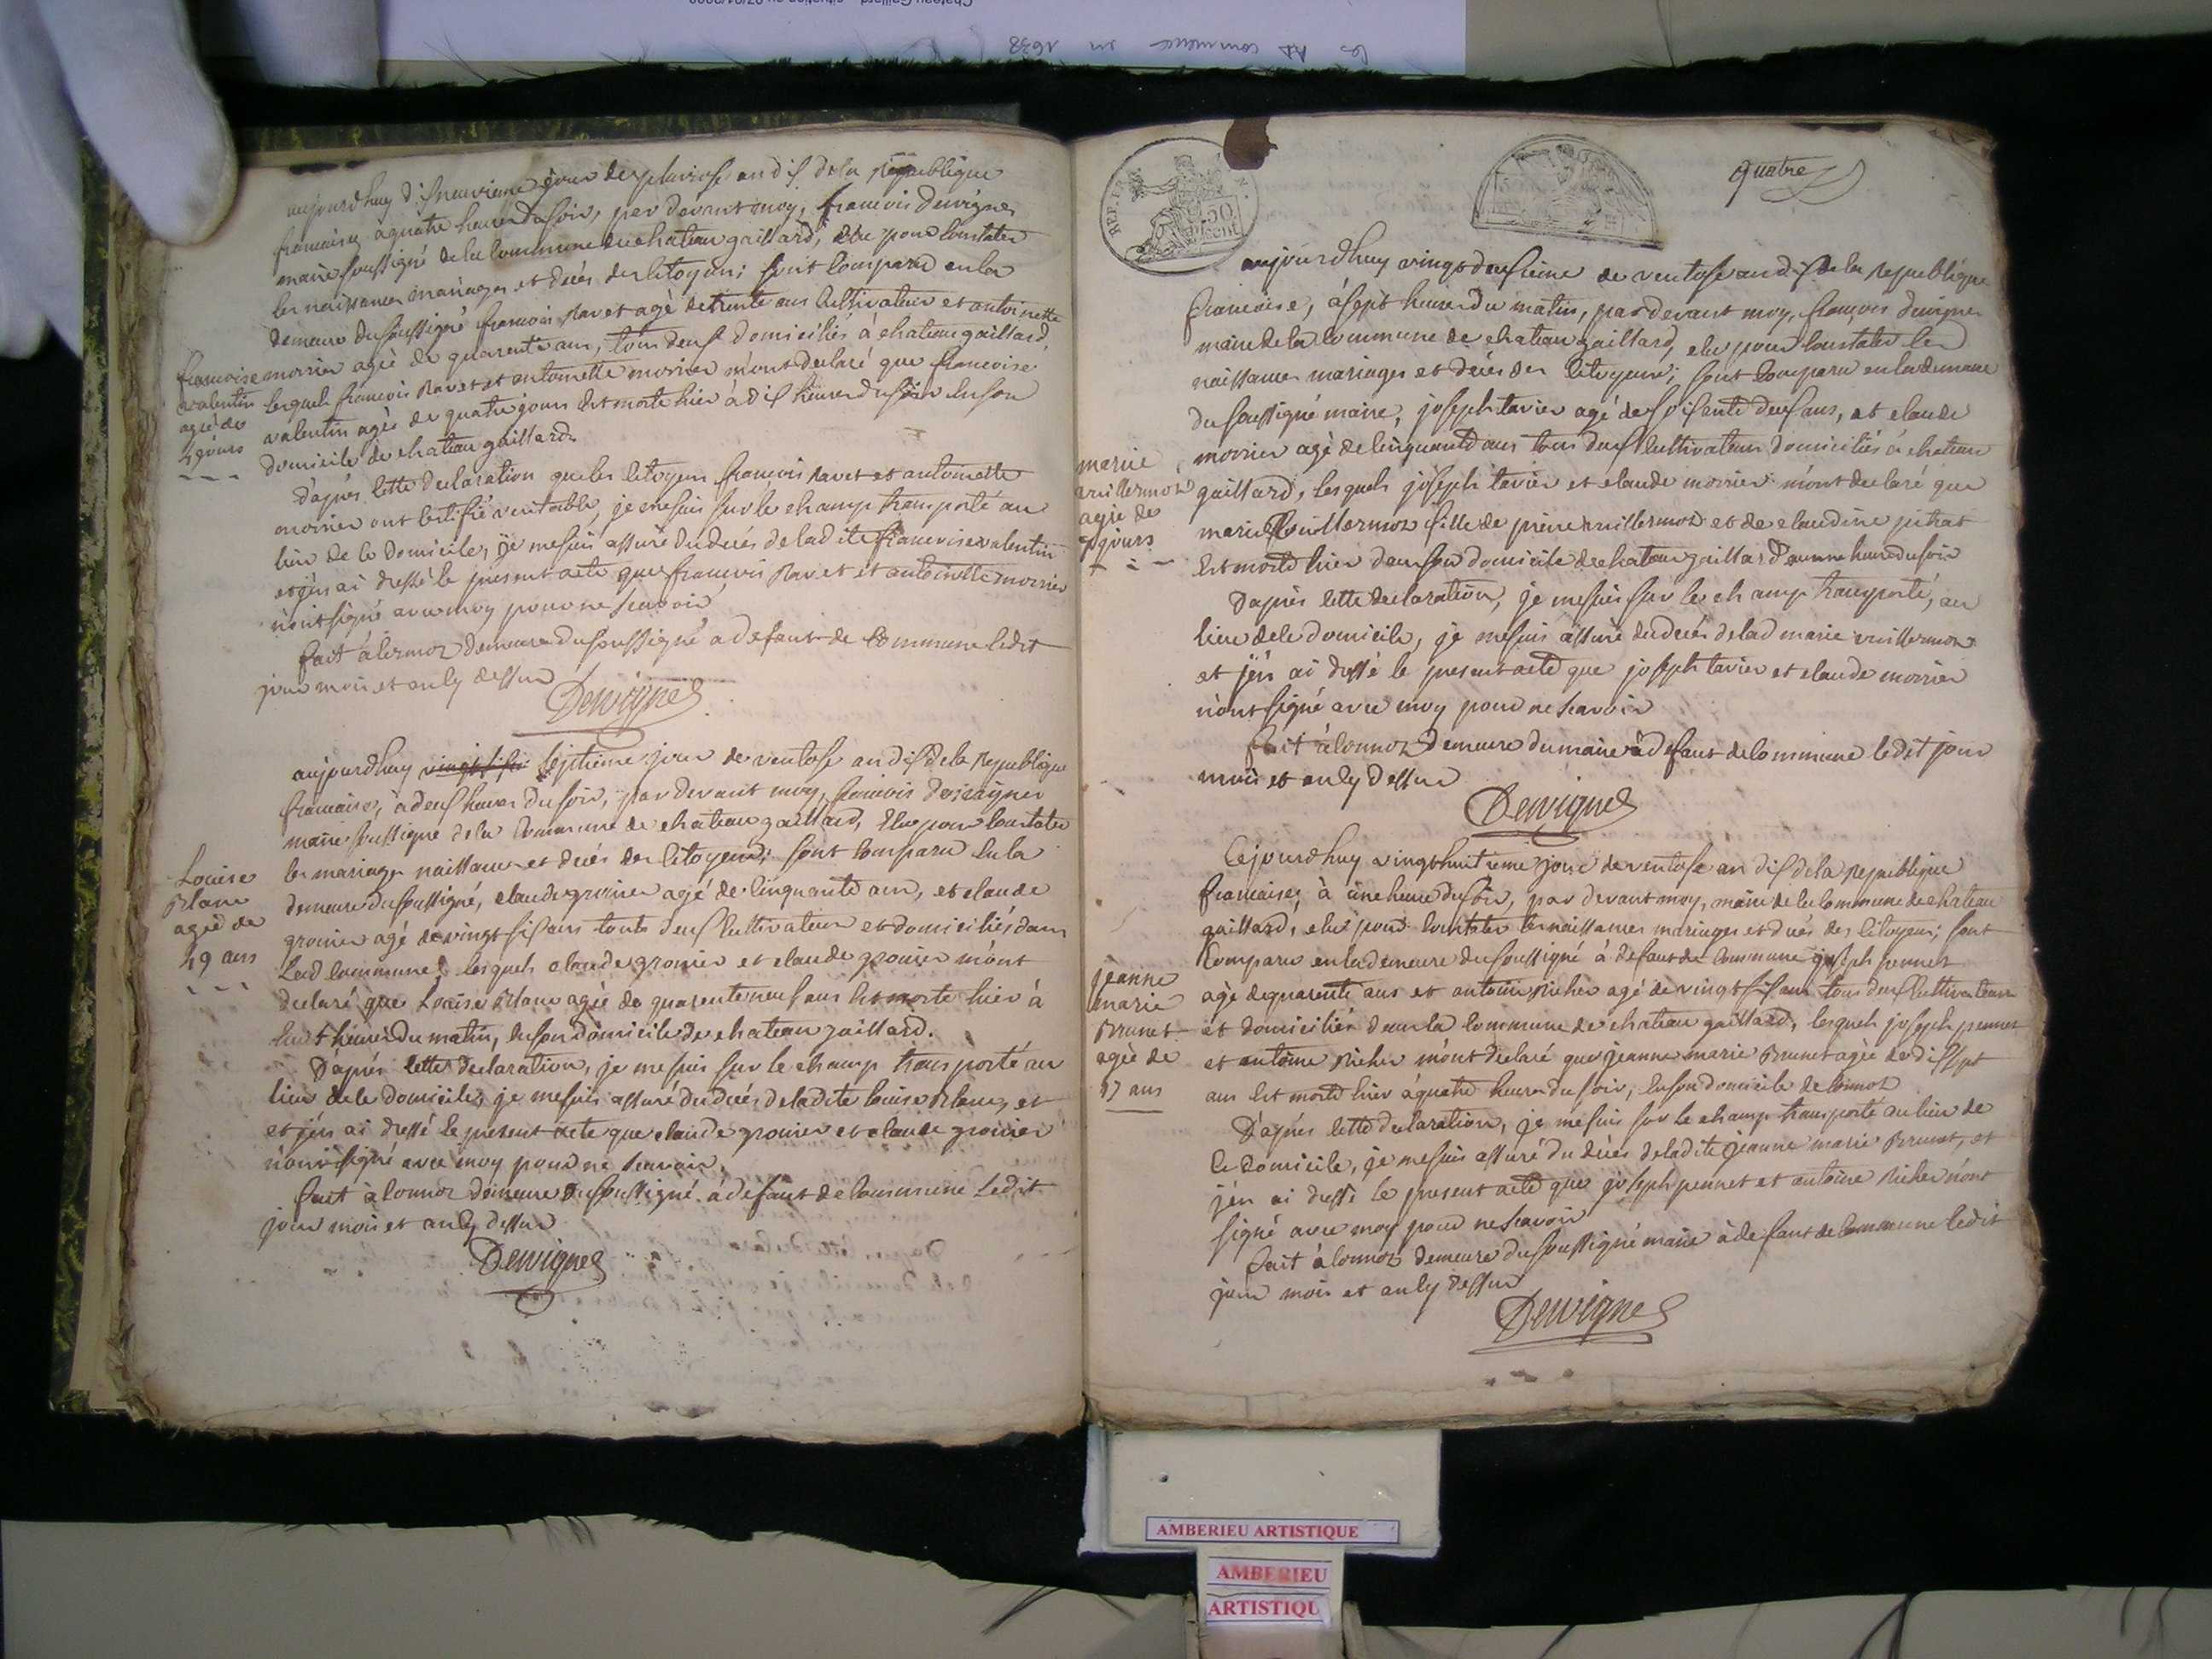 les AD commence en 1638
aujourdhuy disneuvieme jour de pluviose an dis de la Republique
francaise, à quatre heures du soir, par devant moy, francois Dewignes
maire soussigné de la Commune de chateau gaillard, élu pour constater
les naissances mariages et decés des citoyens; sont comparu en la
demeure du soussigné francois Ravet agè de trente ans Cultivateur et antoinette
morrier agèe de quarente ans, tous deux domiciliés à chateau gaillard,
lesquels francois Ravet et antoinette morrier m'ont declaré que francoise
valentin agèe de quatre jours est morte hier à dis heures du soir en son
domicile de chateau gaillard.
francoise
valentin
agèe de
4 jours
D'aprés cette declaration que les citoyens francois Ravet et antoinette
morrier ont certifié veritable, je me suis sur le champ transporté au
lieu de ce domicile, je me suis assuré du decés de ladite francoise valentin
et j'en ai dressé le present acte que francois Ravet et antoinette morrier
n'ont signé avec moy pour ne scavoir
fait à demeure du soussigné a defaut de Commune ledit
jour mois et an cy dessus
Dewignes
aujourdhuy septieme jour de ventose an dis de la Republique
francaise, à deus heures du soir, par devant moy, francois Dewignes
maire soussigné de la Commune de chateau gaillard, élu pour constater
les mariages naissances et decés des citoyens; sont comparu en la
demeure du soussigné, claude grosier agé de cinquante ans, et claude
grosier agé de vingt sis ans touts deus Cultivateur et domiciliés dans
Lad commune, lesquels claude grosier et claude grosier m'ont
declaré que Louise Blanc agèe de quarente neuf ans est morte hier à
huit heures du matin, en son domicile de chateau gaillard.
Louise
Blanc
agèe de
49 ans
D'aprés cette declaration, je me suis sur le champ transporté au
lieu de ce domicile, je me suis assuré du decés de ladite louise Blanc, et
et j'en ai dressé le present acte que claude grosier et claude grosier
n'ont signé avec moy pour ne scavoir.
fait à lonnoz demeure du soussigné à defaut de Commune Ledit
jour mois et an cy dessus
Dewignes
REP. FR
50
cent
quatre
aujourdhuy vingt deusieme de ventose an dis de la Republique
francaise, à sept heures du matin, par devant moy, françois Dewignes
maire de la Commune de chateau gaillard, elu pour constater les
naissances mariages et decés des citoyens; sont comparu en la demeure
du soussigné maire, joseph tavier agé de soisante deus ans, et claude
morrier agè de cinquante ans tous deus Cultivateurs domiciliés à chateau
gaillard, lesquels joseph tavier et claude morrier m'ont declaré que
marie vuillermoz fille de pierre vuillermoz et de claudine pitrat
est morte hier dans son domicile de chateau gaillard a une heure du soir
marie
vuillermoz
agèe de
jours
D'aprés cette declaration, je me suis sur le champ transporté, au
lieu de ce domicile, je me suis assuré du decés de lad marie vuillermoz
et j'en ai dressé le present acte que joseph tavier et claude morrier
n'ont signé avec moy pour ne scavoir
fait à lonnoz demeure du maire à defaut de Commune ledit jour
mois et an cy dessus
Dewignes
Cejourdhuy vingt huitieme jour de ventose an dis de la Republique
francaise, à une heure du soir, par devant moy, maire de la Commune de chateau
gaillard, elu pour constater les naissances mariages et decés des citoyens; sont
Comparu en la demeure du soussigné à defaut de Commune joseph pennet
agè de quarente ans et antoine Richer agé de vingt sis ans tous deus Cultivateurs
et domiciliés dans la Commune de chateau gaillard, lesquels joseph pennet
et antoine Richer m'ont declaré que jeanne marie Brunet agèe de dis sept
ans est morte hier à quatre heures du soir, en son domicile de lonnoz
jeanne
marie
Brunet
agèe de
17 ans
D'aprés cette declaration, je me suis sur le champ transporté au lieu de
ce domicile, je me suis assuré du decés de ladite jeanne marie Brunet, et
j'en ai dressé le present acte que joseph pennet et antoine Richer n'ont
signé avec moy pour ne scavoir
fait à lonnoz demeure du soussigné maire à defaut de Commune ledit
jour mois et an cy dessus
Dewignes
AMBERIEU ARTISTIQUE
AMBERIEU
ARTISTIQU